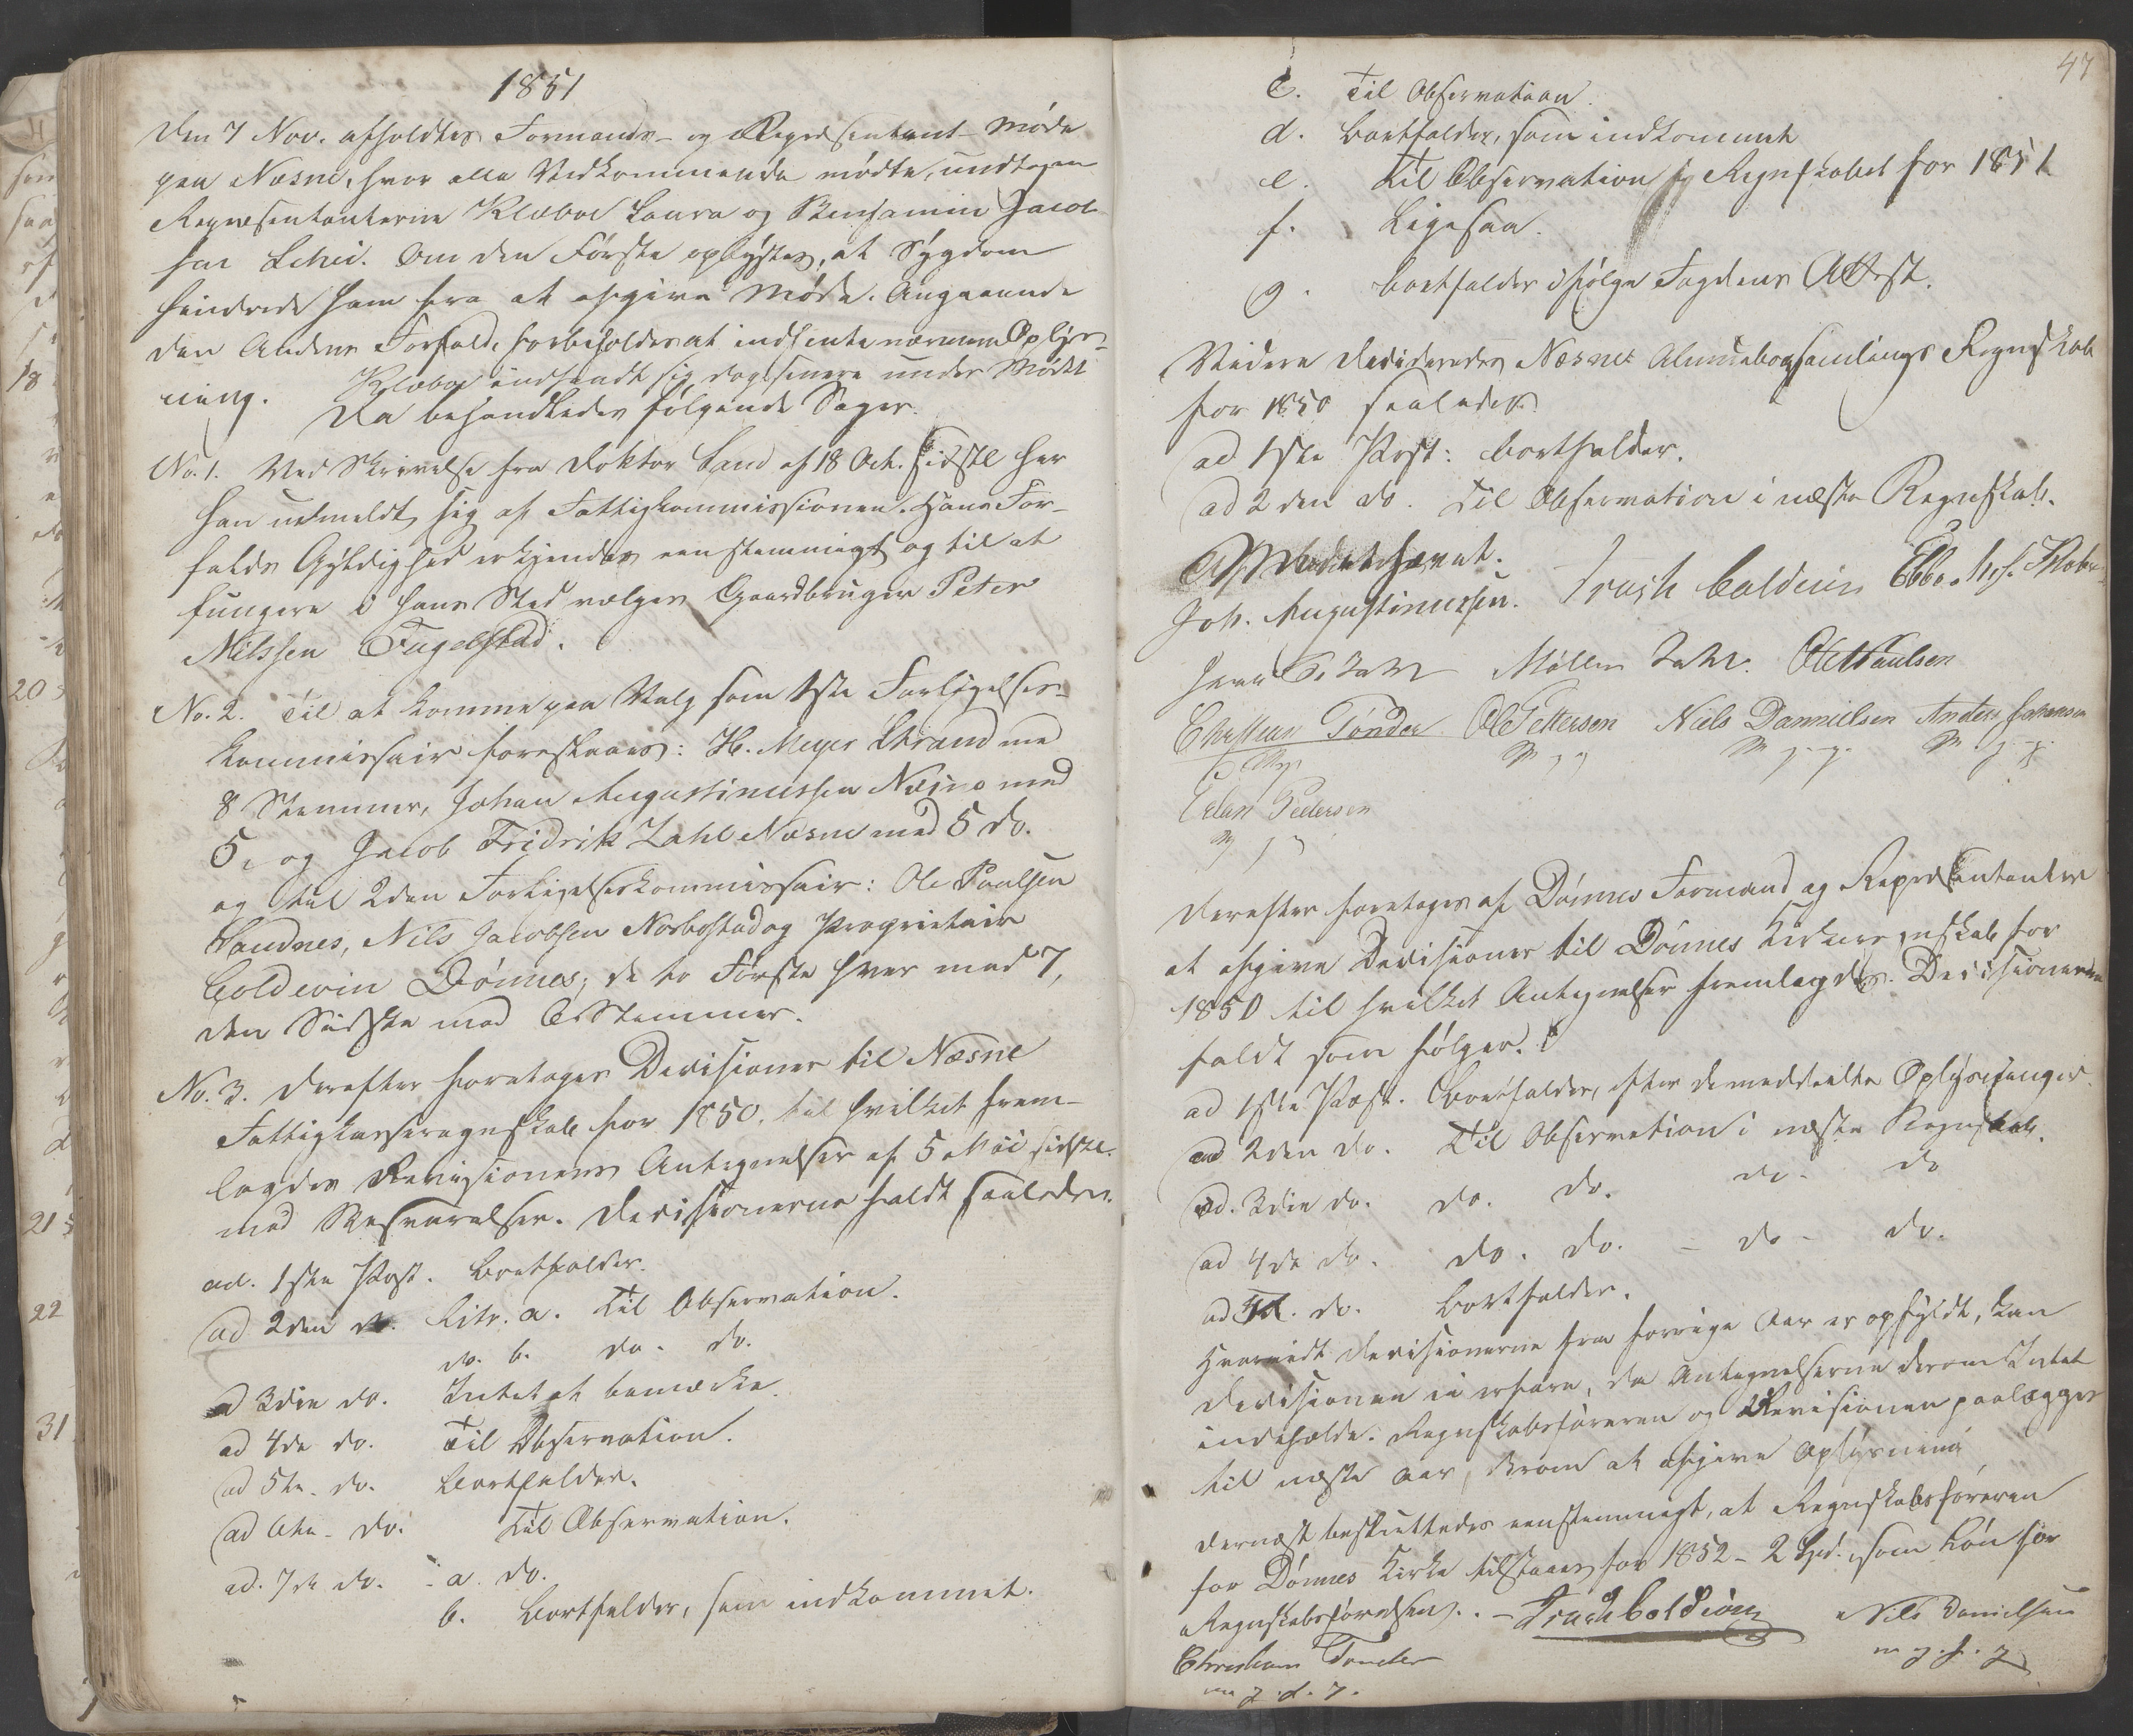 1851
Den 7 Nov. afholdtes Formands- og Repræsentant-Møde
paa Næsne, hvor alle Vedkommende mødte, undtagen
Repræsentanterne Klæboe Laura og Benjamin Jacob-
sen. Om den Første oplystes, at Sygdom
hindrede ham fra at afgive Møde. Angaaende
den Andens Forfald, forbeholdes at indhente nærmere Oplys-
ning. Klæboe indfandt sig dog senere under Mødet
Da behandledes følgende Sager.
No. 1. Ved Skrivelse fra Doktor Sand af 18 Oct. sidstl har
han udmeldt sig af Fattigkommissionen. Hans For-
falds Gyldighed erkjendes eenstemmigt og til at
fungere i hans Sted vælges Gaardbruger Peter
Nilssen Fagelstad.
No. 2. Til at komme paa Valg som 1ste Forligelses-
kommissair foreslaaes: H. Meyer Strand med
8 Stemmer, Johan Augustinussen Næsne med
5, og Jacob Fridrik Zahl Næsne med 5 do.
og til 2den Forligelseskommissair: Ole Paulsen
Sandnes, Nils Jacobsen Norbostad og Proprietair
Coldevin Dønnes; de to Første hver med 7,
den Sidste med 6 Stemmer.
No. 3. Derefter foretoges Decisioner til Næsne
Fattigkasseregnskab for 1850, til hvilket frem-
lagdes Revisionens Antegnelser af 5 Mai sidstl.
med Besvarelser. Decisionerne faldt saaledes.
ad. 1ste Post. Bortfalder.
ad 2den do. Litr. a. Til Observation.
do. b. do. do.
ad 3die do. Intet at bemærke.
ad 4de do. Til Observation.
ad 5te. do. Bortfalder.
ad 6te - do. Til Observation.
ad. 7de do. - a. do.
b. Bortfalder, som indkommet.
47
c. Til Observation.
d. Bortfalder, som indkommet
e. Til Observation Regnskabet for 1851
f. Ligesaa.
g. Bortfalder ifølge Fogdens Attest.
Videre decideredes Næsnes Almuebogsamlings Regnskab
for 1850 saaledes.
ad 1ste Post: Bortfalder.
ad 2den do. Til Observation i næste Regnskab.
Mødet hævet.
Joh. Augustinussen. Isach Coldevin Ebbe
Zahl Møller Zahl. Ole Paulsen
Christian Tønder Ol Pettersen Niels Dannielsen Anders Johansen
Pedersen
Derefter foretoges af Dønnes Formænd og Repræsentanter
at afgive Decisioner til Dønnes Kirkeregnskab for
1850 til hvilket Antegnelser fremlagdes. Decisionerne
faldt som følger:
ad 1ste Post. Bortfalder, efter de meddeelte Oplysninger.
ad 2den do. Til Observation i næste Regnskab.
ad. 3die do. do. do. do - do
ad 4de do. do. do. - do - do.
ad 5te. do. Bortfalder.
Hvorvidt Decisionerne fra forrige Aar er opfyldt, kan
Decisionen ei erfare, da Antegnelserne derom Intet
indeholde. Regnskabsføreren og Revisionen paalægges
til næste Aar, derom at afgive Oplysning
Dernæst besluttedes eenstemmigt, at Regnskabsføreren
for Dønnes Kirke tilstaaes for 1852 - 2 Spd. som Løn for
Regnskabsførelsen. - Isach Coldevin Nils Danielsen
m. p. p.
Christian Tønder
m. p. p.